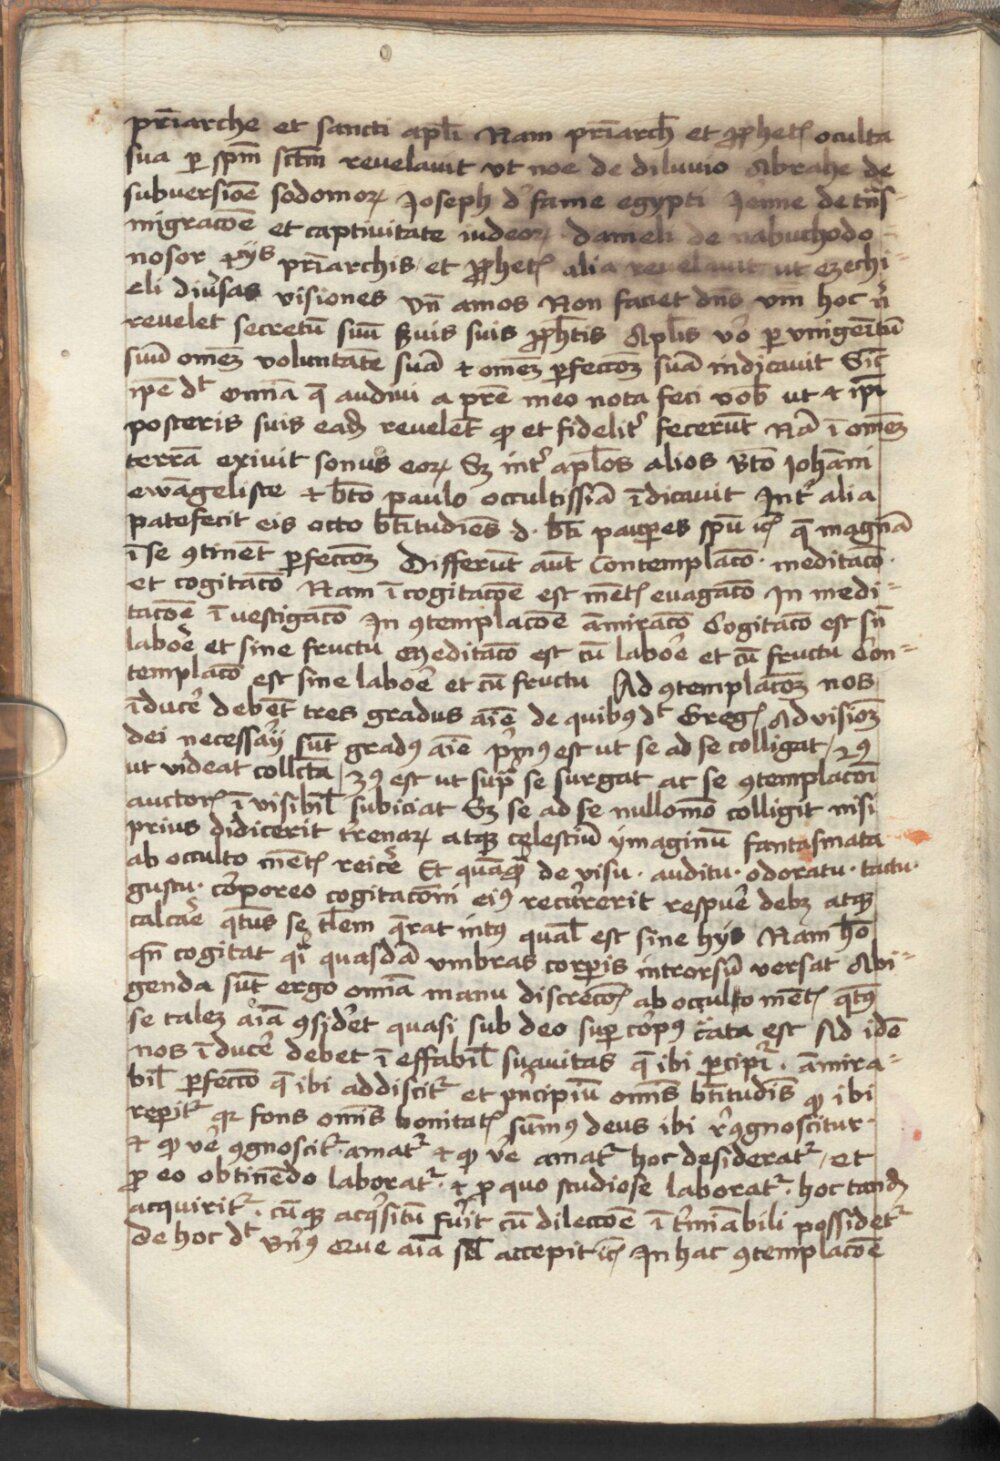 pr̄iarche et sancti apl̄i Nam pr̄iarch̄ et ꝓphetꝭ oculta
sua ꝑ spm̄ sctm̄ revelavit vt noe de diluvio Abrahe de
subversiōe sodomoꝝ Joseph d' fame egypti Jeīme de tn̄s-
migracōe et captivitate iudeoꝝ danieli de nabuchodo-
nosor pr̄iarchis et ꝓphetꝭ alia revelavit ut ezechi-
eli div̓sas visiones Vn̄ amos Non faciet dn̄s vm̄ hoc n̄
revelet secretū suū suis ꝓphetis Apl̄is vo̓ ꝑ vnigenitū
suū omēꝫ voluntatē suā ⁊ omēꝫ ꝑfeccōꝫ suā indicavit Sic
ip̄e dt̓ omīa q̄ audivi a pr̄e meo nota feci vob̄ ut ⁊ ip̄i
posteris suis eadē revelēt qđ et fidelit̓ fecerūt Nā ī omēꝫ
terrā exivit sonus eoꝝ Sꝫ int̓ apl̄os alios bt̄o Johāni
ewāgeliste ⁊ bt̄o paulo occultissīa īdicavit Int̓ alia
patefecit eis octo bt̄itudīes d. bt̄i paupeꝛes spū ⁊cꝭ q̄ magnā
ī se ꝯtinēt ꝑfeccōꝫ Differūt aūt Contemplacō · meditacō ·
et cogitacō Nam ī cogitacōe est mētꝭ evagacō In medi-
tacōe īvestigacō In ꝯtemplacōe āmiracō Cogitacō est sn̄
laboe̓ et sine fructu Meditacō est cū laboe̓ et cū fructu Con-
templacō est sine laboe̓ et cū fructu Ad ꝯtemplacōꝫ nos
īduce̓ debēt tres gradus aīe de quibꝰ dt̓ Gregꝭ Ad visiōꝫ
dei necessarij sūt gradꝰ aīe p̓mꝰ est ut se ad se colligat / 2ꝰ
ut videat collc̄ta / 3ꝰ est ut sup̄ se surgat ac se ꝯtemplacōi
auctorꝭ īvisibil̄ subiciat Sꝫ se ad se nullomō colligit nisi
prius didicerit t̓renaꝝ atqꝫ celestiū ymaginū fantasmata
ab occulto mētꝭ reice̓ Et quāqꝫ de visu · auditu · odoratu · tactu ·
gustu · corporeo cogitacōni eiꝰ recurrerit respue̓ debꝫ atqꝫ
calcae̓ qt̄us se tl̄em q̄rat intꝰ qual̄ est sine hijs Nam hō
qn̄ cogitat qi̓ quasdā vmbras corpeꝛis introrsū versat Abi-
genda sūt ergo omīa manu discrecōꝭ ab occulto mētꝭ qt̄ꝰ
se talez aīā ꝯsid̓et quasi sub deo suꝑ corpꝰ c̓ata est Ad idē
nos īduce̓ debet ī effabil̄ suavitas q̄ ibi ꝑcipit̓ · āmira-
bil̄ ꝑfeccō q̄ ibi addiscit̓ et p̓ncipiū omīs bt̄itudīs qđ ibi
repit̓ qꝛ fons omīs bonitatꝭ sūmꝰ deus ibi ꝯgnoscitur ·
⁊ qđ ve̓ ꝯgnoscit̓ · amat̓ ⁊ qđ ve̓ amat̓ hoc desiderat̓ / et
ꝓ eo obtinēdo laborat̓ · ⁊ ꝓ quo studiose laborat̓ · hoc tandē
acquirit̓ · cūqꝫ acq̓situ̅ fu̓it cū dileccōe ī t̓mīabili possidet̓
de hoc dt̓ aīa accepit ⁊cꝭ In hac ꝯtemplacōe